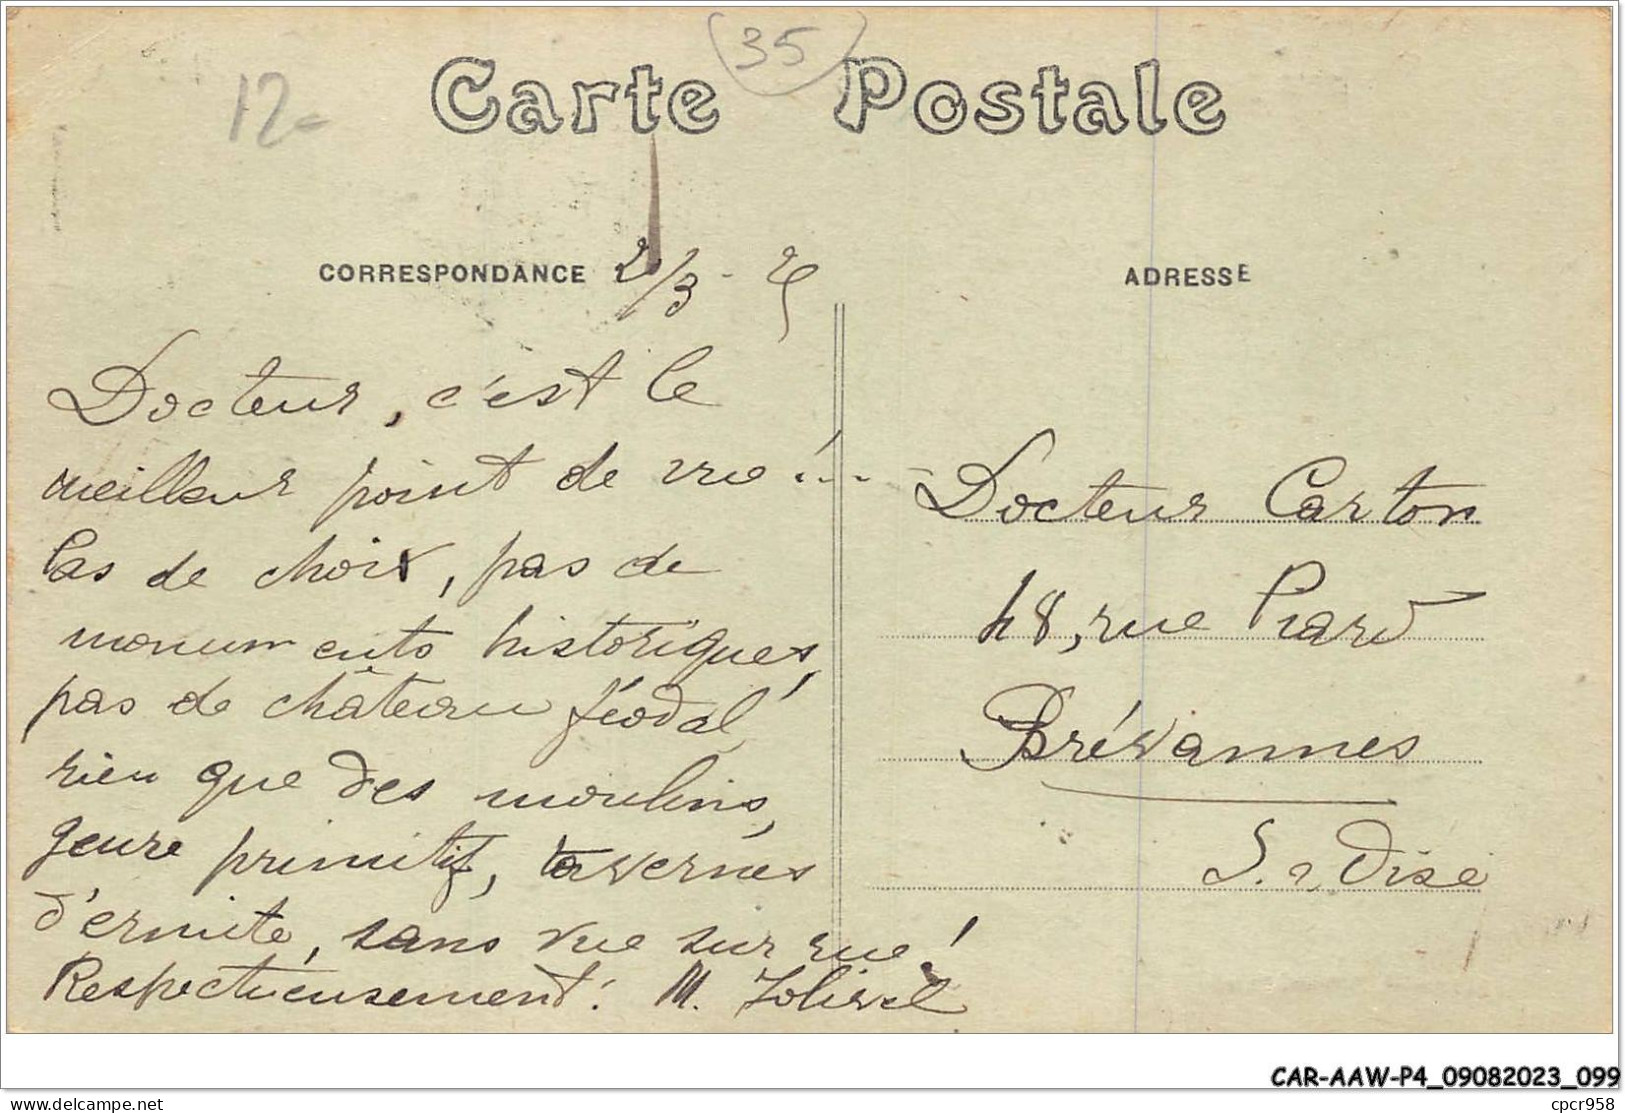 12-
(35)
Carte Postale
CORRESPONDANCE 2/3-25
Docteur, c'est le
meilleur point de vue !..
Pas de choix, pas de
monuments historiques,
pas de château féodal,
rien que des moulins,
genre primitif, tavernes
d'ermite, sans vue sur rue !
Respectueusement : M. Jolivel
ADRESSE
Docteur Carton
48, rue Piard
Brévannes
S. & Oise
CAR-AAW-P4_09082023_099
www.delcampe.net
cpcr958